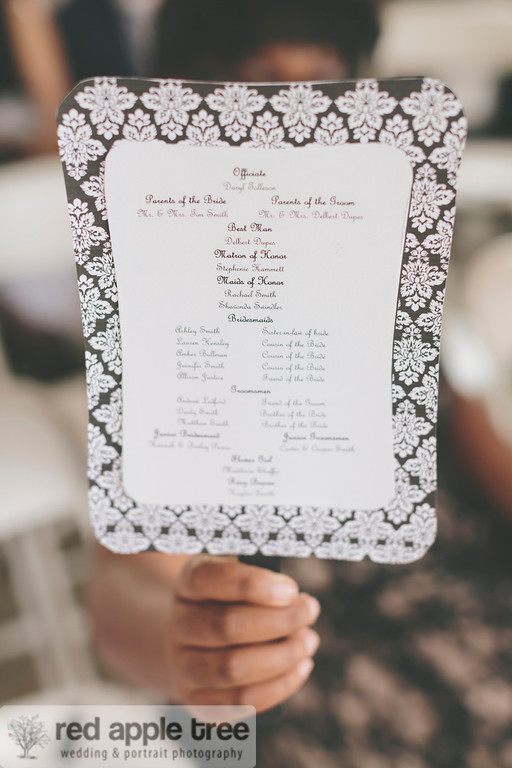 Officiate
Daryl Tolleson
Parents of the Bride Parents of the Groom
Mr. & Mrs. Tim Smith Mr. & Mrs. Delbert Dupes
Best Man
Delbert Dupes
Matron of Honor
Stephenie Hammett
Maids of Honor
Rachael Smith
Shavonda Swindler
Bridesmaids
Ashley Smith Sister-in-law of bride
Lauren Hensley Cousin of the Bride
Amber Bullman Cousin of the Bride
Jennifer Smith Cousin of the Bride
Allison Justice Friend of the Bride
Groomsmen
Andrew Ledford Friend of the Groom
Dusty Smith Brother of the Bride
Matthew Smith Brother of the Bride
Junior Bridesmaid Junior Groomsmen
Hannah & Bailey Carter & Cooper Smith
Flower Girl
Ring Bearer
Smith
red apple tree
wedding & portrait photography